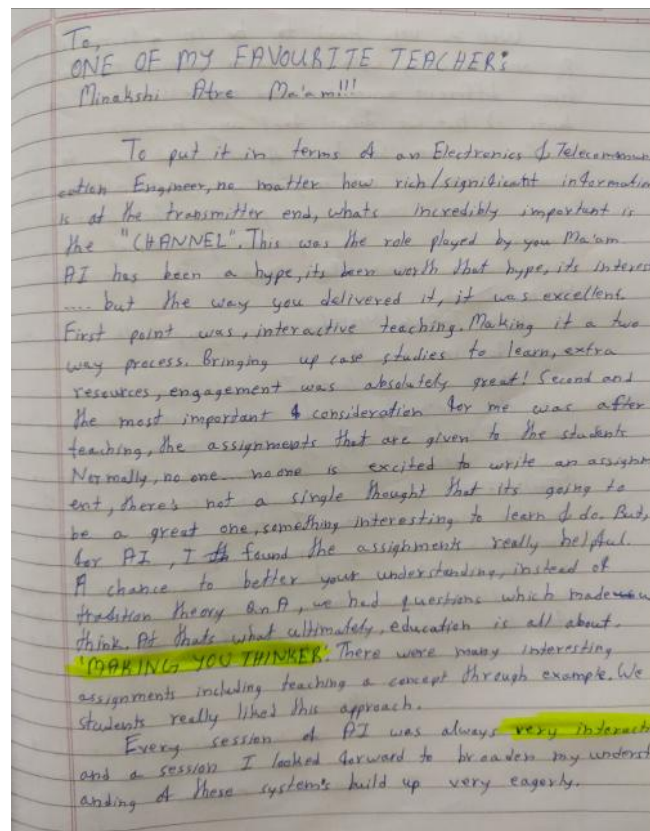 To,
ONE OF MY FAVOURITE TEACHER:
Minakshi Atre Ma'am!!!
To put it in terms of an Electronics & Telecommun
cation Engineer, no matter how rich/significant informatio
is at the transmitter end, whats incredibly important is
the "CHANNEL". This was the role played by you Ma'am
AI has been a hype, its been worth that hype, its interes
.... but the way you delivered it, it was excellent.
First point was, interactive teaching. Making it a two
way process. Bringing up case studies to learn, extra
resources, engagement was absolutely great! Second and
the most important consideration for me was after
teaching, the assignments that are given to the students
Normally, no one... no one is excited to write an assignm
ent, there's not a single thought that its going to
be a great one, something interesting to learn & do. But,
for AI, I found the assignments really helpful.
A chance to better your understanding, instead of
tradition theory QnA, we had questions which made u
think. At thats what ultimately, education is all about.
'MAKING YOU THINKER'. There were many interesting
assignments including teaching a concept through example. We
students really liked this approach.
Every session of AI was always very interact
and a session I looked forward to broaden my underst
anding of these system's build up very eagerly.